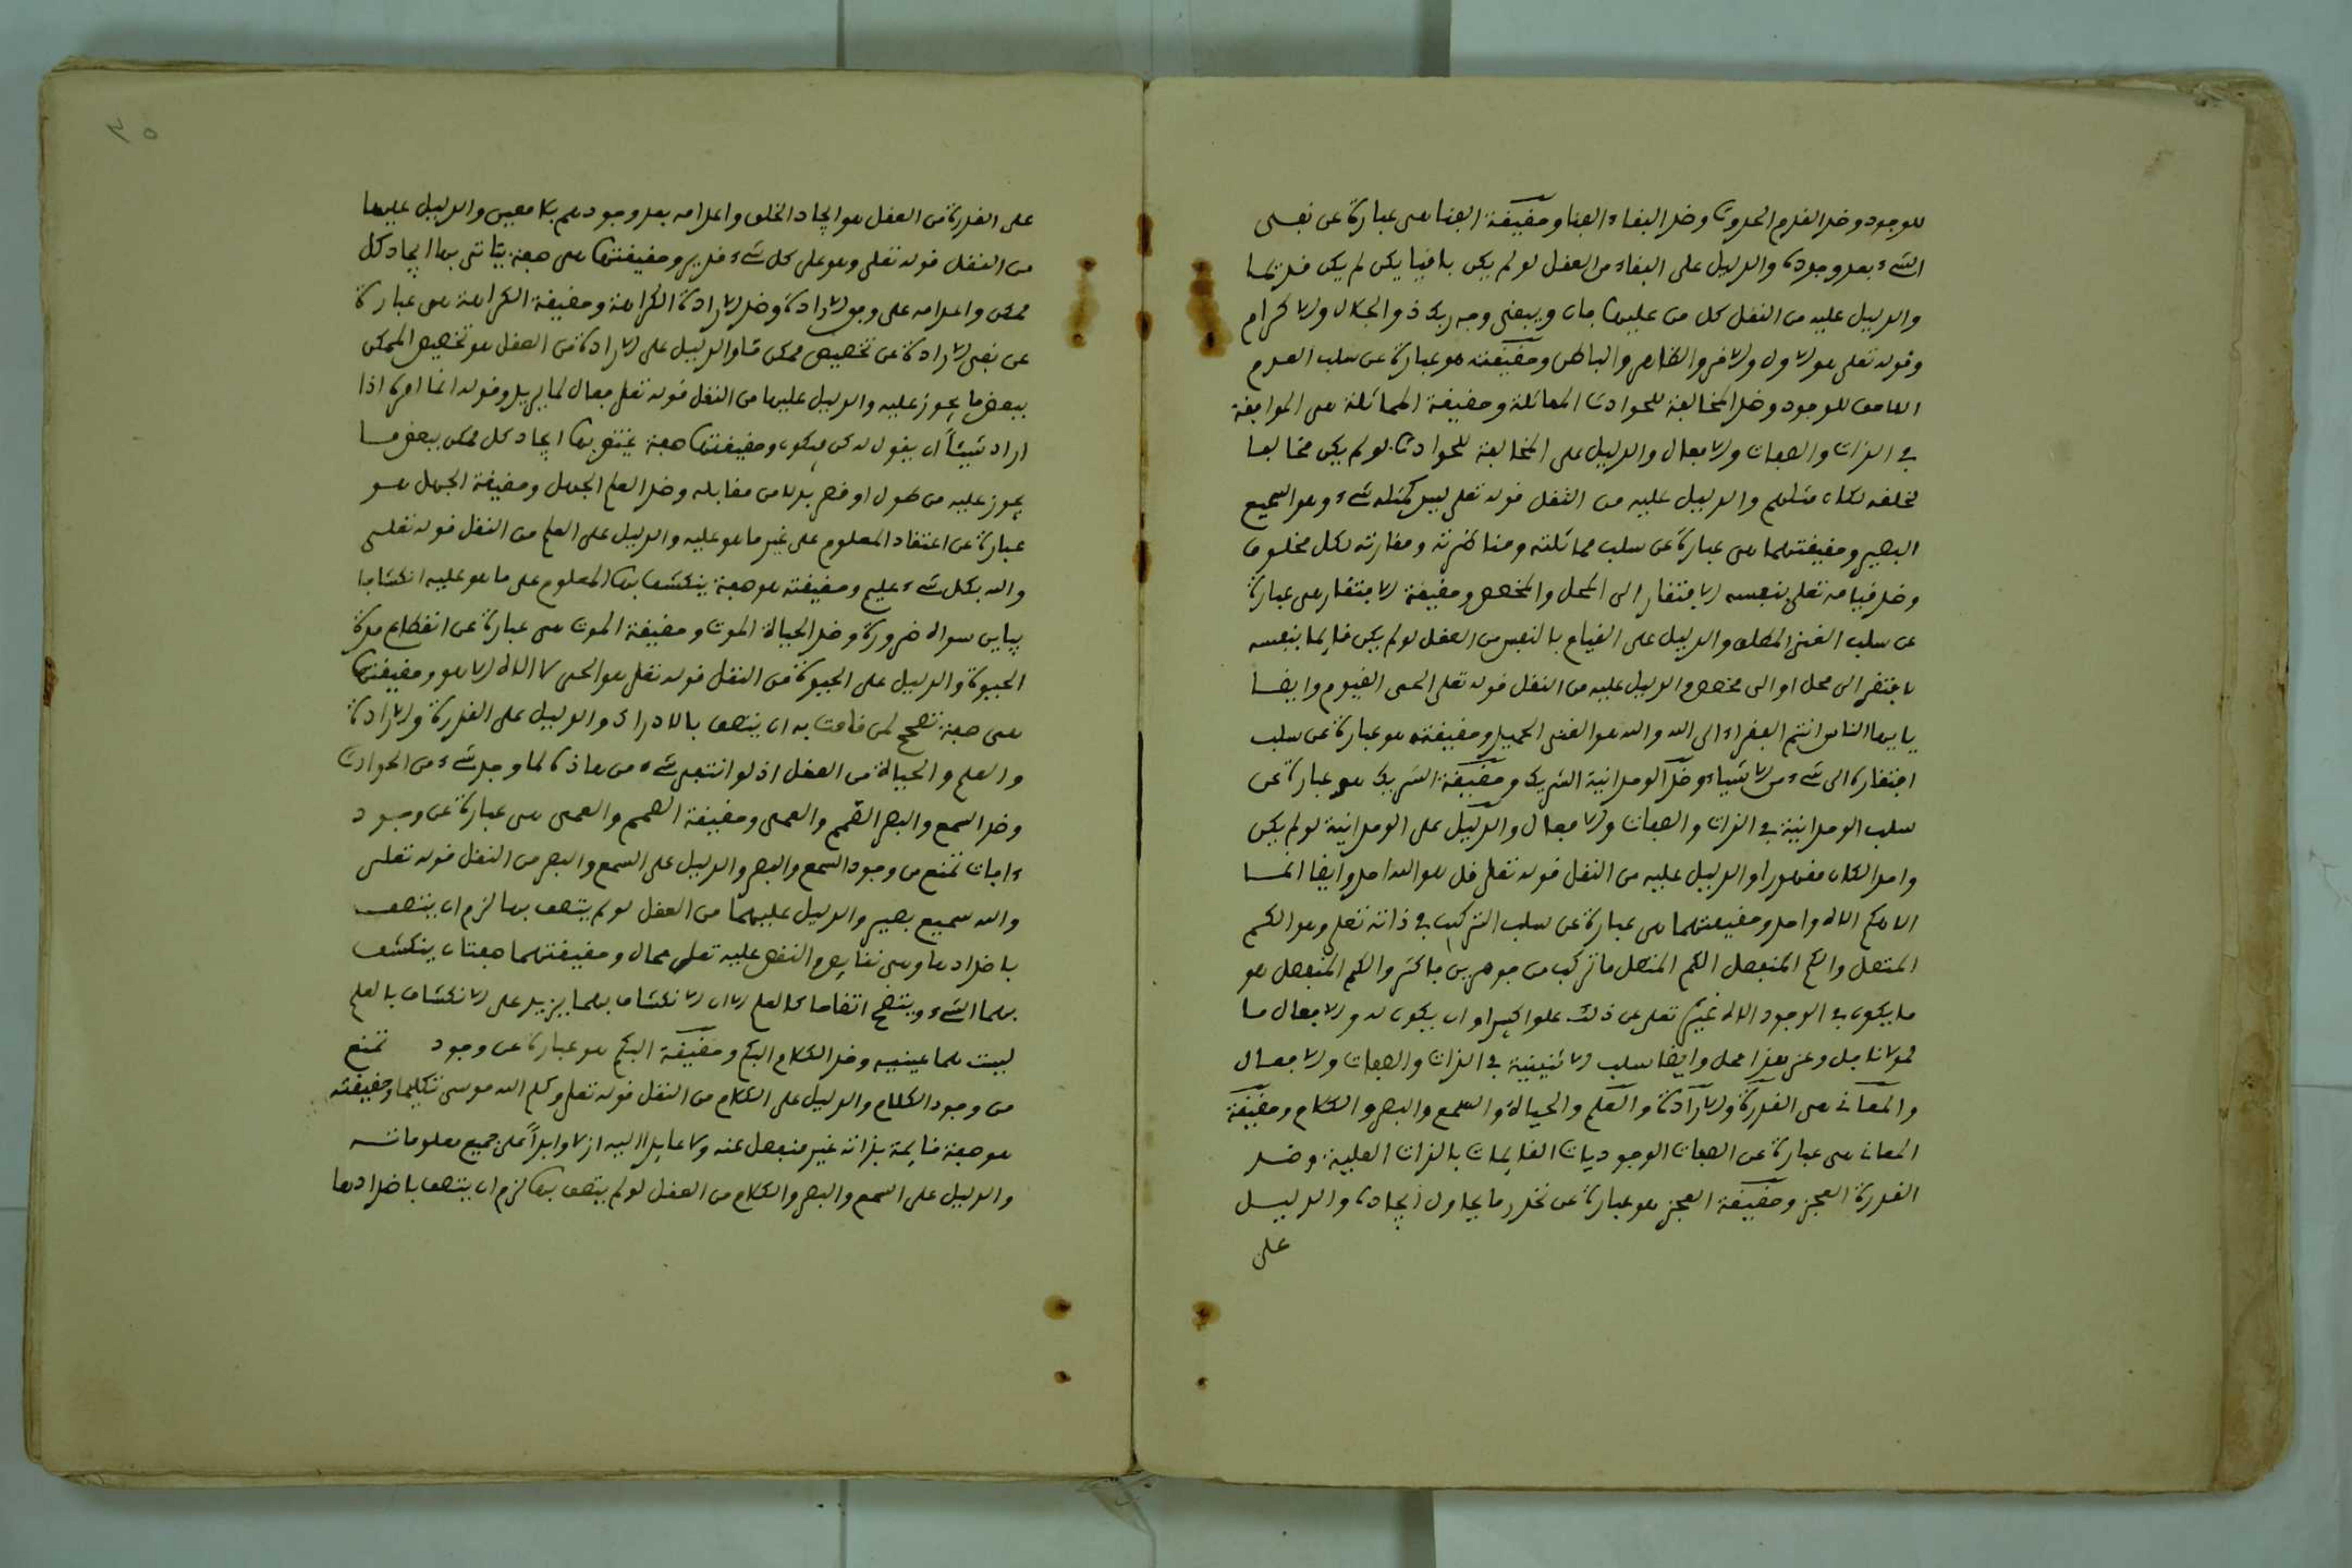 للوجود وضد القدم الحدوث وضد البقاء الفنا وحقيقة الفنا هى عبارة عن نفى
الشىء بعد وجوده والدليل على البقاء من العقل لو لم يكن باقيا يكن لم يكن قديما
والدليل عليه من النقل كل من عليها فان ويبقى وجه ربك ذو الجلال والاكرام
وقوله تعلى هو الاول والاخر والظاهر والباطن وحقيقته هو عبارة عن سلب العدم
اللاحق للوجود وضد المخالفة للحوادث المماثلة وحقيقة المماثلة هى الموافقة
فى الذات والصفات والافعال والدليل على المخالفة للحوادث لو لم يكن مخالفا
لخلقه لكان مثلهم والدليل عليه من النقل قوله تعلى ليس كمثله شىء وهو السميع
البصير وحقيقتهما هى عبارة عن سلب مماثلته ومناظرته ومقارنته لكل مخلوق
وضد قيامه تعلى بنفسه الافتقار الى المحل والمخصص وحقيقة الافتقار هى عبارة
عن سلب الغنى المطلق والدليل على القيام بالنفس من العقل لو لم يكن قايما بنفسه
لافتقر الى محل او الى مخصص والدليل عليه من النقل قوله تعلى الحى القيوم وايضا
يايها الناس انتم الفقراء الى الله والله هو الغنى الحميد وحقيقته هو عبارة عن سلب
افتقاره الى شىء من الاشياء وضد الوحدانية الشريك وحقيقة الشريك هو عبارة عن
سلب الوحدانية فى الذات والصفات والافعال والدليل على الوحدانية لو لم يكن
واحدا لكان مقهورا والدليل عليه من النقل قوله تعلى قل هو الله احد وايضا انما
الاهكم الاه واحد وحقيقتهما هى عبارة عن سلب التركيب فى ذاته تعلى وهو الكم
المتصل والكم المنفصل الكم المتصل ما تركب من جوهرين فاكثر والكم المنفصل هو
ما يكون فى الوجود الاه غيره تعلى عن ذلك علوا كبيرا وان يكون له والافعال ما
لمولانا جل وعز بهذا محل وايضا سلب الاثنينية فى الذات والصفات والافعال
والمعانى هى القدرة والارادة والعلم والحياة والسمع والبصر والكلام وحقيقة
المعانى هى عبارة عن الصفات الوجوديات القايمات بالذات العلية وضد
القدرة العجز وحقيقة العجز هو عبارة عن تخدر ما يحاول ايجاده والدليل
على
٣٥
على القدرة من العقل هو ايجاد الخلق واعدامه بعد وجودهم بلا معين والدليل عليها
من النقل قوله تعلى وهو على كل شىء قدير وحقيقتها هى صفة يتاتى بها ايجاد كل
ممكن واعدامه على وجو الارادة وضد الارادة الكراهة وحقيقة الكراهة هى عبارة
عن نفى الارادة عن تخصيص ممكن ما والدليل على الارادة من العقل هو تخصيص الممكن
ببعض ما يجوز عليه والدليل عليها من النقل قوله تعلى فعال لما يريد وقوله انما امره اذا
اراد شيئاً ان يقول له كن فيكون وحقيقتها صفة يختص بها ايجاد كل ممكن ببعض ما
يجوز عليه من طول او قصر بدلا من مقابله وضد العلم الجهل وحقيقة الجهل هو
عبارة عن اعتقاد المعلوم على غير ما هو عليه والدليل على العلم من النقل قوله تعلى
والله بكل شىء عليم وحقيقته هو صفة ينكشف بها المعلوم على ما هو عليه انكشافا
يباين سواه ضرورة وضد الحياة الموت وحقيقة الموت هى عبارة عن انقطاع مدة
الحيوة والدليل على الحيوة من النقل قوله تعلى هو الحى لا الاه الا هو وحقيقتها
هى صفة تصحح لمن قامت به ان يتصف بالادراك والدليل على القدرة والارادة
والعلم والحياة من العقل اذ لو انتفى شىء من هاذه لما وجد شىء من الحوادث
وضد السمع والبصر الصمم والعمى وحقيقة الصمم والعمى هى عبارة عن وجود
ءافات تمنع من وجود السمع والبصر والدليل على السمع والبصر من النقل قوله تعلى
والله سميع بصير والدليل عليهما من العقل لو لم يتصف بها لزم ان يتصف
باضدادها وهى نقايص والنقص عليه تعلى محال وحقيقتهما صفتان ينكشف
بهما الشىء ويتضح اتضاحا كالعلم الا ان الانكشاف بهما يزيد على الانكشاف بالعلم
ليست هما عينيه وضد الكلام البكم وحقيقة البكم هو عبارة عن وجود تمنع
من وجود الكلام والدليل على الكلام من النقل قوله تعلى وكلم الله موسى تكليما وحقيقته
هو صفة قايمة بذاته غير منفصل عنه ولا عايدا اليه ازلا وابداً على جميع معلوماته
والدليل على السمع والبصر والكلام من العقل لو لم يتصف بها لزم ان يتصف باضدادها